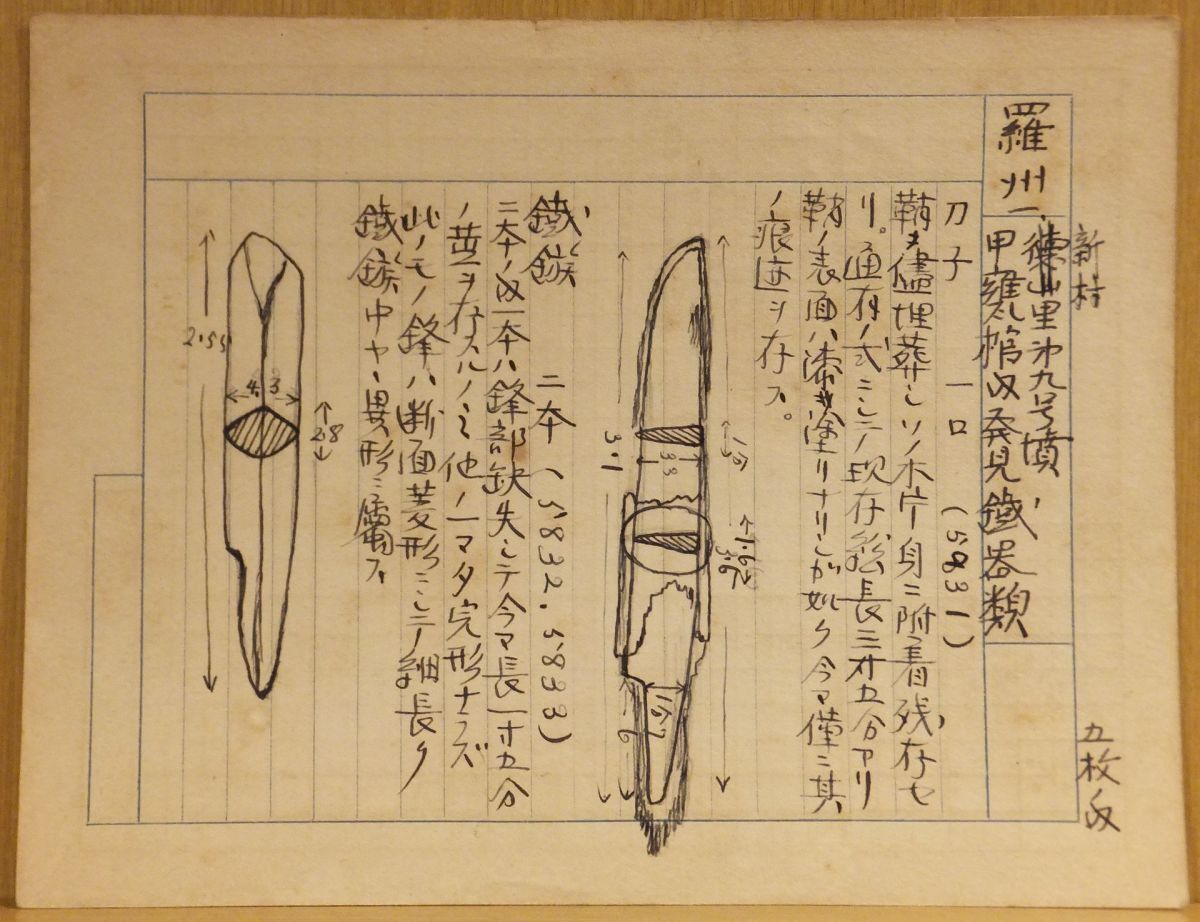 羅州
新村
一、徳山里第九号墳、
甲甕棺内発見鐵器類
五枚ノ内
刀子 一口 (5831)
鞘ノ儘埋葬シソノ木片身ニ附着残存セ
リ。通有ノ式ニシテ現存総長三寸五分アリ
鞘ノ表面ハ漆ヲ塗リナリシガ如ク今マ僅ニ其
ノ痕迹ヲ存ス。
鐵鏃 二本 (5832.5833)
二本ノ内一本ハ鋒部缺失シテ今マ長一寸五分
ノ莖ヲ存スルノミ他ノ一マタ完形ナラズ
此ノモノ鋒ハ断面菱形ニシテ細長ク
鐵鏃中ヤヽ異形ニ属ス
3.1
1.62
2.55
4.3
2.8